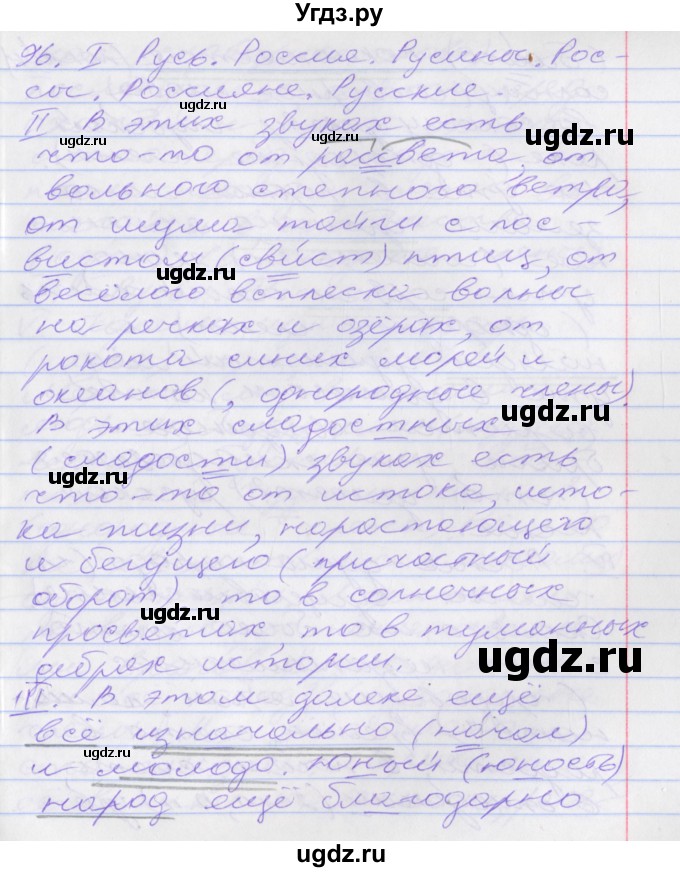 Угдз.ру
96. I Русь. Россия. Русины. Рос-
сы. Россияне. Русские.
II В этих звуках есть
что-то от рассвета, от
вольного степного ветра,
от шума тайги с пос-
вистом (свист) птиц, от
весёлого всплеска волны
на речках и озёрах, от
рокота синих морей и
океанов (, однородные члены)
В этих сладостных
(сладости) звуках есть
что-то от истока, исто-
ка жизни, нарастающего
и бегущего (причастный
оборот) то в солнечных
просветах, то в туманных
дебрях истории.
III. В этом далеке ещё
всё изначально (начал)
и молодо. Юный (юность)
народ ещё благодарно
ugdz.ru
ugdz.ru
ugdz.ru
ugdz.ru
ugdz.ru
ugdz.ru
ugdz.ru
ugdz.ru
ugdz.ru
ugdz.ru